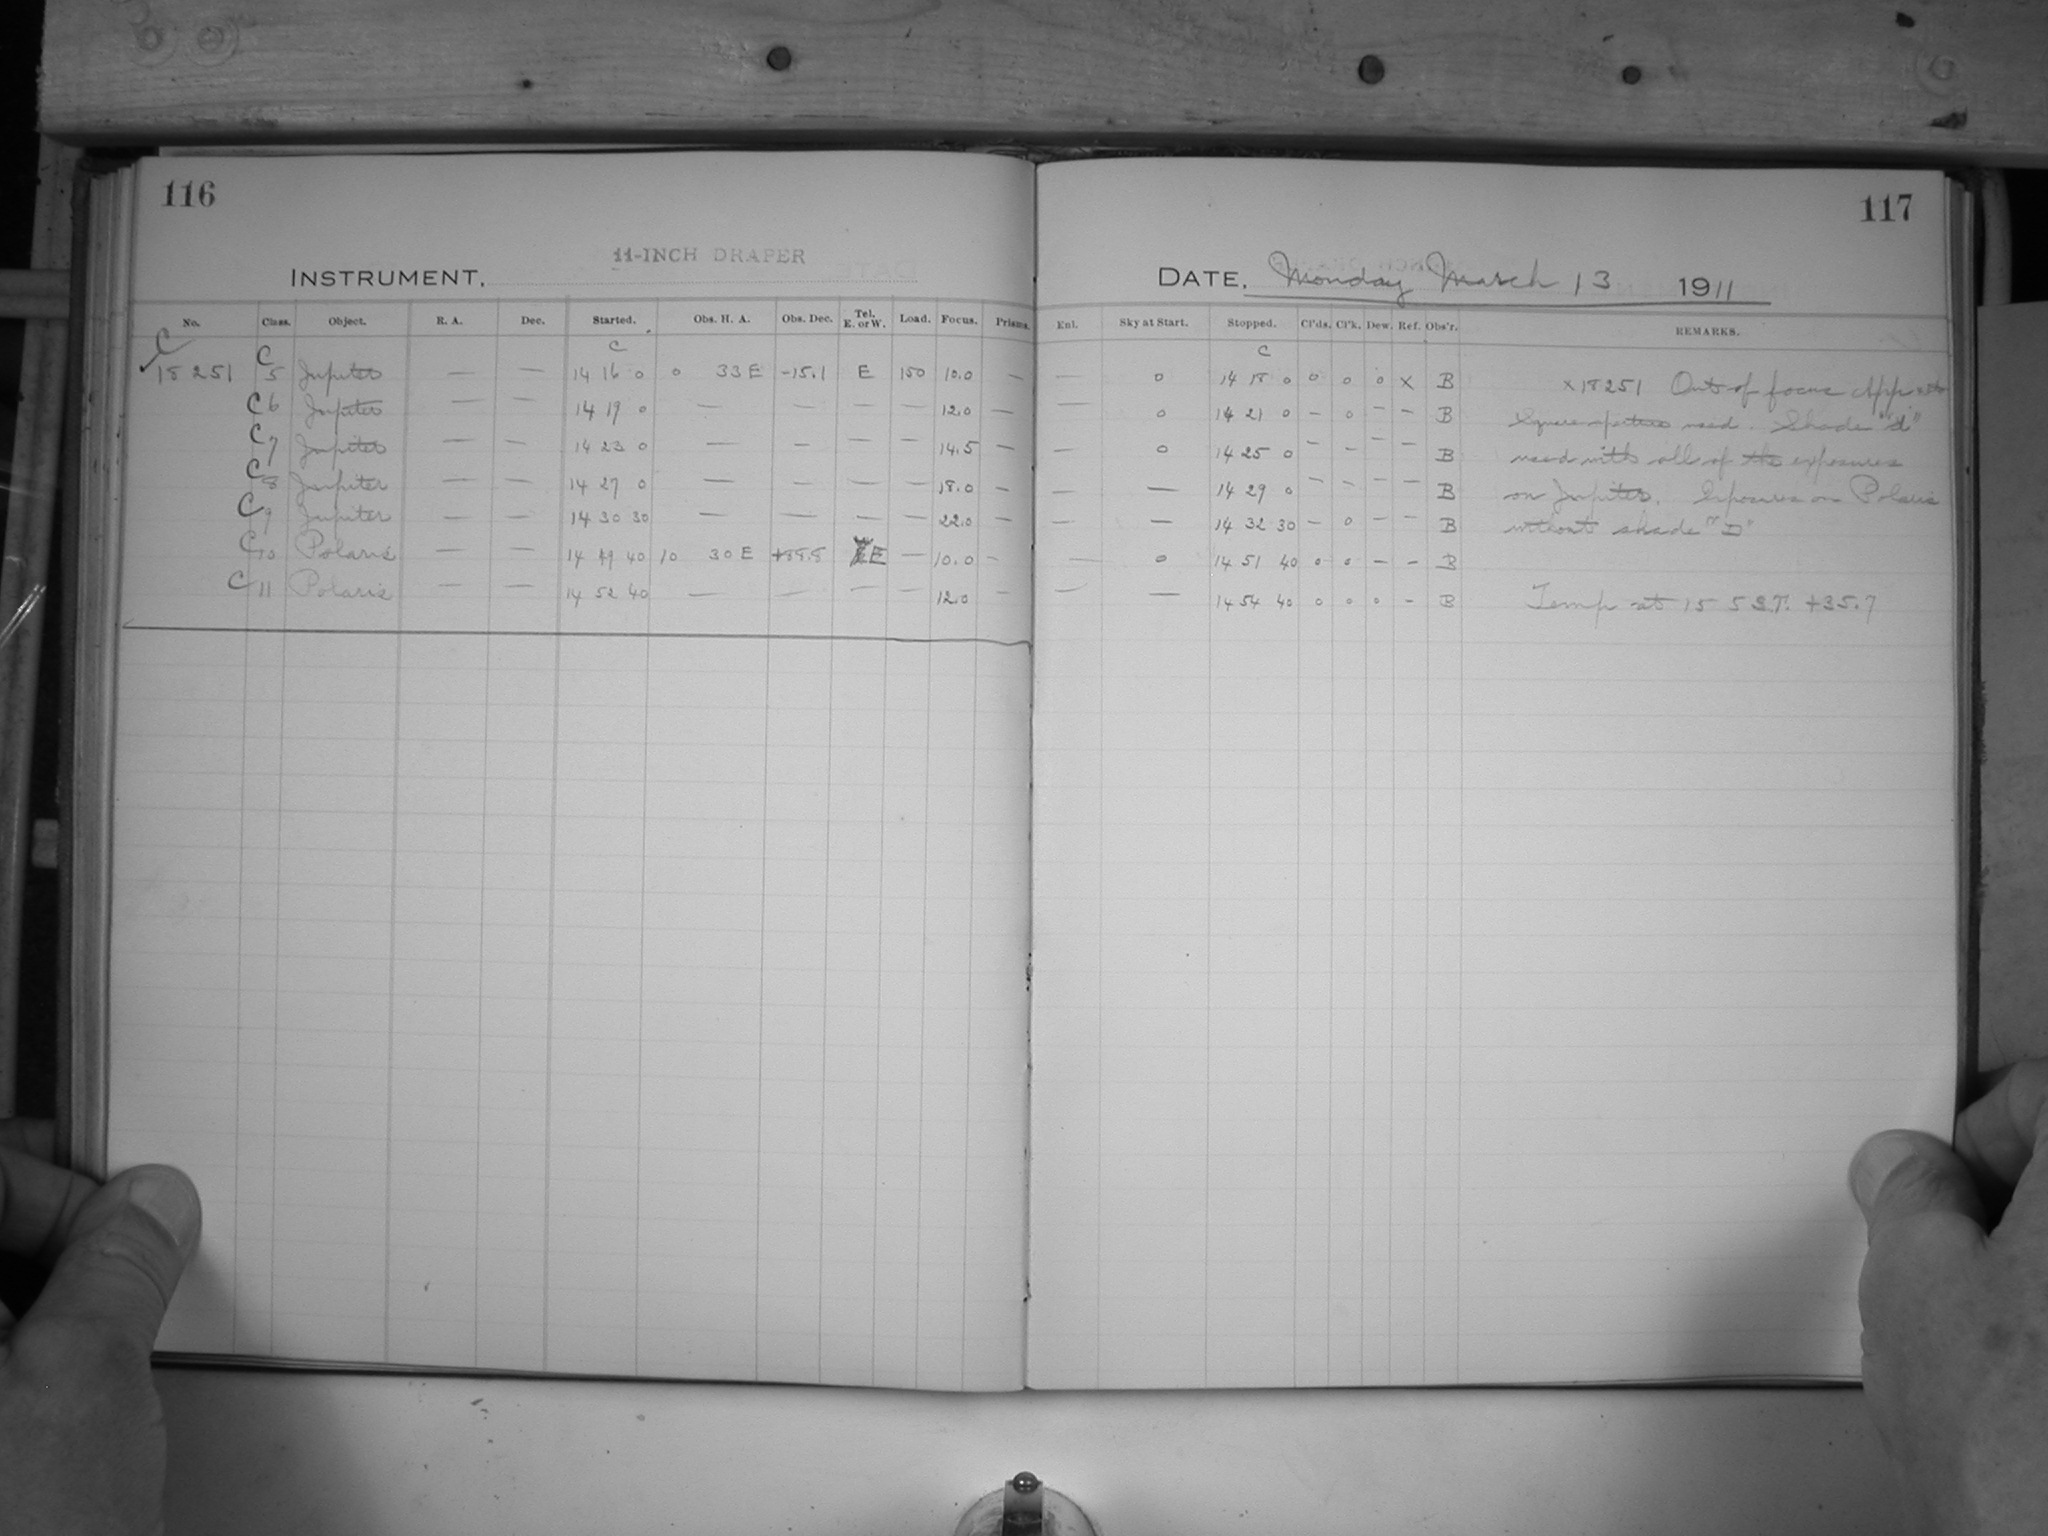 116
11-INCH DRAPER
INSTRUMENT,
No. Class. Object. R. A. Dec. Started. Obs. H. A. Obs. Dec. Tel. E. or W. Load. Focus. Prisms.
C C
18251 C5 Jupiter — — 14 16 0 0 33 E -15.1 E 150 10.0 —
C6 Jupiter — — 14 19 0 — — — — 12.0 —
C7 Jupiter — — 14 23 0 — — — — 14.5 —
C8 Jupiter — — 14 27 0 — — — — 18.0 —
C9 Jupiter — — 14 30 30 — — — — 22.0 —
C10 Polaris — — 14 49 40 10 30 E +88.8 E — 10.0 —
C11 Polaris — — 14 52 40 — — — — 12.0 —
117
DATE, Monday March 13 1911
Enl. Sky at Start. Stopped. Cl'ds. Cl'k. Dew. Ref. Obs'r. REMARKS.
C
— 0 14 18 0 0 0 0 x B x18251 Out of focus
— 0 14 21 0 — 0 — — B Square aperture used. Shade "d"
— 0 14 25 0 — — — — B used with all of the exposures
— — 14 29 0 — — — — B on Jupiter. Exposures on Polaris
— — 14 32 30 — 0 — — B without shade "D"
— 0 14 51 40 0 0 — — B
— — 14 54 40 0 0 0 — B Temp at 15 5 S.T. +35.7